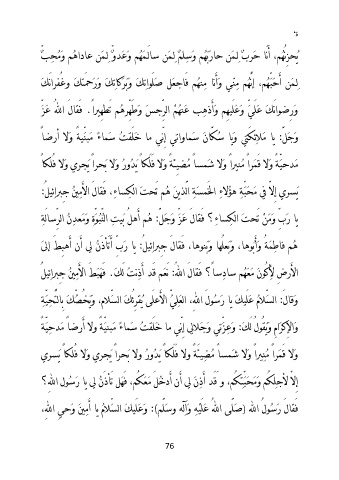 يُحزِنُهُم، أَنَا حَربٌ لِمَن حارَبَهُم وَسِلمٌ لِمَن سالَمَهُم وَعَدوٌّ لِمَن عاداهُم وَمُحِبٌّ
لِمَن أَحَبَّهُم، إِنَّهُم مِنّي وَأَنا مِنهُم فَاجعَل صَلَواتِكَ وَبَرَكاتِكَ وَرَحمَتَكَ وغُفرانَكَ
وَرِضوانَكَ عَلَيَّ وَعَلَيهِم وَأَذهِب عَنهُمُ الرِّجسَ وَطَهِّرهُم تَطهِيراً. فَقالَ اللهُ عَزَّ
وَجَلَّ: يا مَلائِكَتي وَيا سُكّانَ سَماواتي إِنّي ما خَلَقتُ سَماءً مَبنيَّةً وَلا أرضاً
مَدحيَّةً وَلا قَمَراً مُنيراً وَلا شَمساً مُضِيئَةً وَلا فَلَكاً يَدُورُ وَلا بَحراً يَجري وَلا فُلكاً
يَسري إِلاّ في مَحَبَّةِ هؤُلاءِ الخَمسَةِ الَّذينَ هُم تَحتَ الكِساءِ، فَقالَ الأَمينُ جِبرائِيلُ:
يا رَبِّ وَمَنْ تَحتَ الكِساءِ؟ فَقالَ عَزَّ وَجَلَّ: هُم أَهلُ بَيتِ النُّبُوَّةِ وَمَعدِنُ الرِّسالَةِ
هُم فاطِمَةُ وَأَبُوها، وَبَعلُها وَبَنوها، فَقالَ جِبرائِيلُ: يا رَبِّ أَتَأذَنُ لي أَن أَهبِطَ إلىَ
الأَرضِ لأِكُونَ مَعَهُم سادِساً؟ فَقالَ اللهُ: نَعَم قَد أَذِنتُ لَكَ. فَهَبَطَ الأَمِينُ جِبرائِيلُ
وَقالَ: السَّلامُ عَلَيكَ يا رَسُولَ اللهِ، العَلِيُّ الأَعلَى يُقرِئُكَ السَّلامَ، وَيَخُصُّكَ بِالتَّحِيَّةِ
وَالإِكرَامِ وَيَقُولُ لَكَ: وَعِزَّتي وَجَلالي إِنّي ما خَلَقتُ سَماءً مَبنيَّةً ولا أَرضاً مَدحِيَّةً
وَلا قَمَراً مُنِيراً وَلا شَمساً مُضِيئَةً ولا فَلَكاً يَدُورُ ولا بَحراً يَجري وَلا فُلكاً يَسري
إِلاّ لأجلِكُم وَمَحَبَّتِكُم، و قَد أَذِنَ لي أَن أَدخُلَ مَعَكُم، فَهَل تَأذَنُ لي يا رَسُول الله؟
فَقالَ رَسُولُ الله (صَلّى اللهُ عَلَيْهِ وَآلِه وسلّم): وَعَلَيكَ السَّلامُ يا أَمِينَ وَحيِ اللهِ،
76